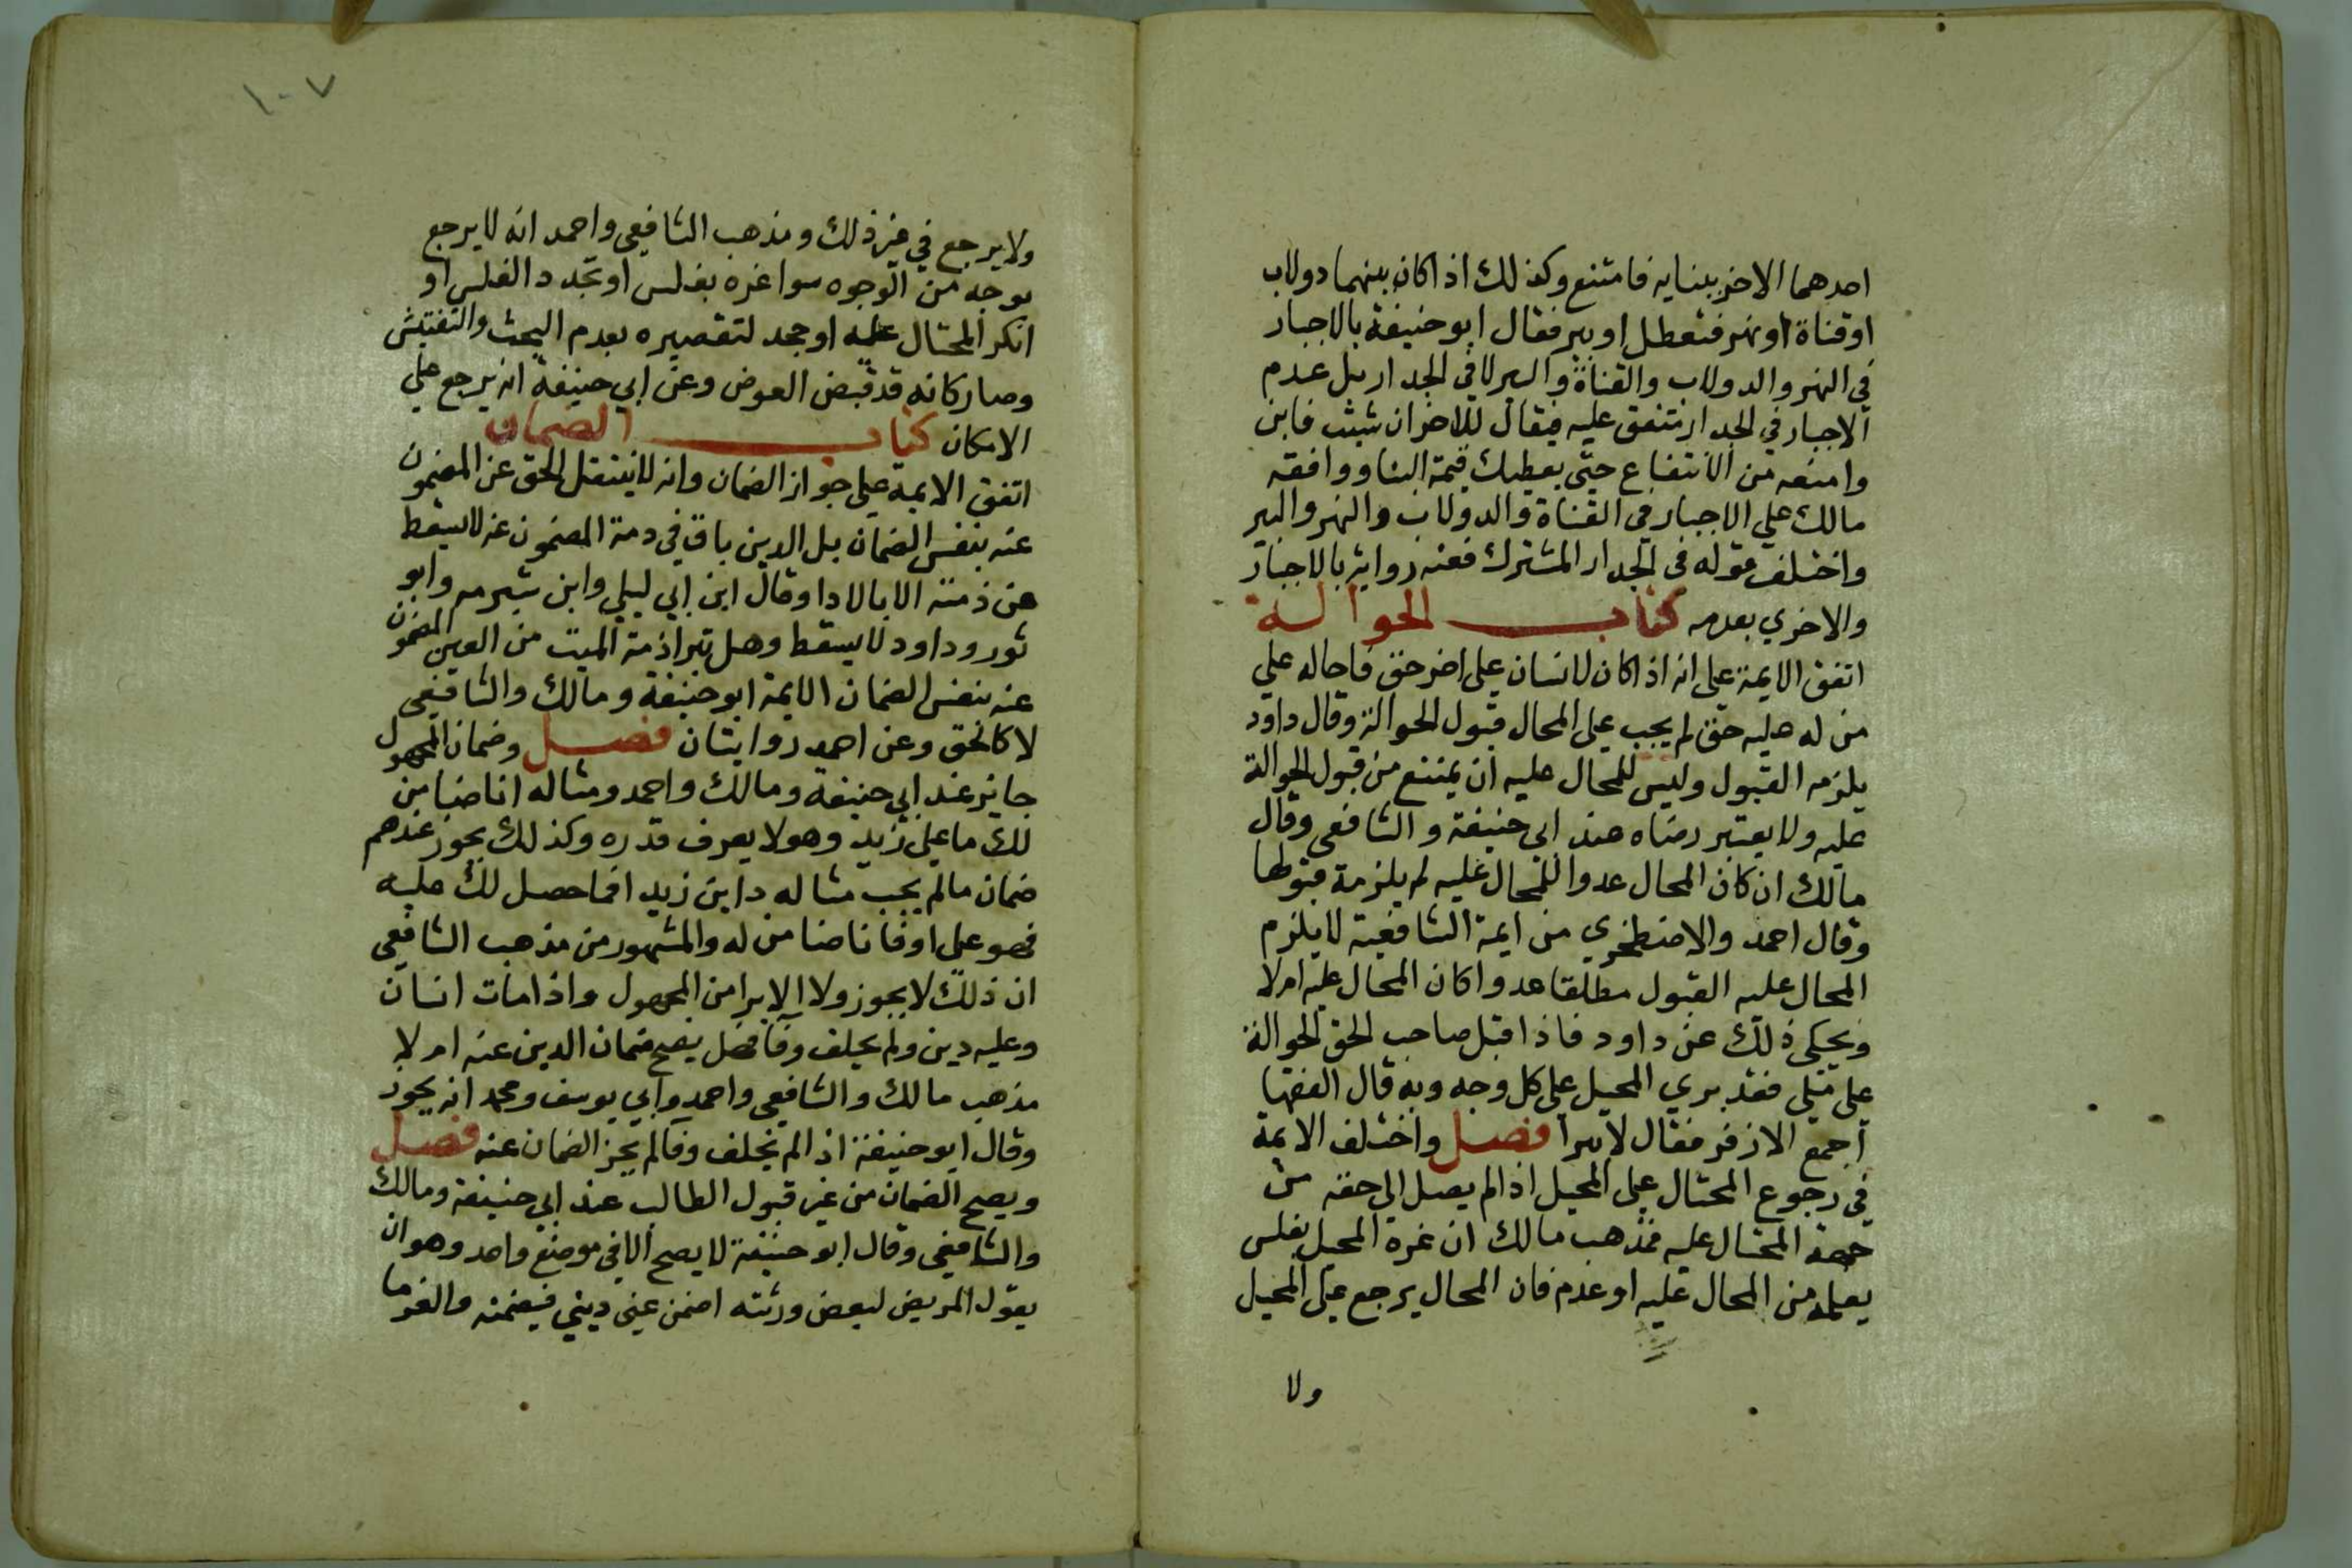 احدهما الاخر ببنايه فامتنع وكذلك اذا كان بينهما دولاب
او قناة او نهر فتعطل او بير فقال ابو حنيفة بالاجبار
في النهر والدولاب والقناة والبير لا في الجدار بل عدم
الاجبار في الجدار متفق عليه فيقال للاخر ان شيت فابن
وامنعه من الانتفاع حتى يعطيك قيمة البنا ووافقه
مالك علي الاجبار في القناة والدولاب والنهر والبير
واختلف قوله في الجدار المشترك فعنه رواية بالاجبار
والاخري بعدمه كتاب الحوالة
اتفق الايمة على انه اذا كان لانسان علي اخر حق فاحاله علي
من له عليه حق لم يجب على المحال قبول الحوالة وقال داود
يلزمه القبول وليس للمحال عليه ان يمتنع من قبول الحوالة
عليه ولا يعتبر رضاه عند ابي حنيفة والشافعي وقال
مالك ان كان المحال عدوا للمحال عليه لم يلزمة قبولها
وقال احمد والاصطخري من ايمة الشافعية لا يلزم
المحال عليه القبول مطلقا عدوا كان المحال عليه ام لا
ويحكى ذلك عن داود فاذا قبل صاحب الحق الحوالة
على ملي فقد بري المحيل على كل وجه وبه قال الفقها
اجمع الا زفر فقال لا يبرا فصل واختلف الايمة
في رجوع المحتال على المحيل اذا لم يصل الي حقه من
جهة المحتال عليه فمذهب مالك ان غره المحيل بفلس
يعلمه من المحال عليه او عدم فان المحال يرجع على المحيل
ولا
١٠٧
ولا يرجع في غير ذلك ومذهب الشافعي واحمد انه لا يرجع
بوجه من الوجوه سوا غره بفلس او تجدد الفلس او
انكر المحتال عليه او جحد لتقصيره بعدم البحث والتفتيش
وصار كانه قد قبض العوض وعن ابي حنيفة انه يرجع علي
الامكان كتاب الضمان
اتفق الايمة على جواز الضمان وانه لا ينتقل الحق عن المضمون
عنه بنفس الضمان بل الدين باق في دمة المضمون عنه لا يسقط
عن ذمته الا بالادا وقال ابن ابي ليلي وابن شبرمه وابو
ثور وداود لا يسقط وهل تبرا ذمة الميت من العين المضمون
عنه بنفس الضمان الايمة ابو حنيفة ومالك والشافعي
لا كالحق وعن احمد روايتان فصل وضمان المجهول
جايز عند ابي حنيفة ومالك واحمد ومثاله انا ضامن
لك ما على زيد وهو لا يعرف قدره وكذلك يجوز عندهم
ضمان مالم يجب مثاله داين زيد افما حصل لك عليه
فهو على اوفانا ضامن له والمشهور من مذهب الشافعي
ان ذلك لا يجوز ولا الابرا من المجهول واذا مات انسان
وعليه دين ولم يخلف وفا فهل يصح ضمان الدين عنه ام لا
مذهب مالك والشافعي واحمد وابي يوسف ومحمد انه يجوز
وقال ابو حنيفة اذا لم يخلف وفا لم يجز الضمان عنه فصل
ويصح الضمان من غير قبول الطالب عند ابي حنيفة ومالك
والشافعي وقال ابو حنيفة لا يصح الا في موضع واحد وهو ان
يقول المريض لبعض ورثته اضمن عني ديني فيضمنه والغرما